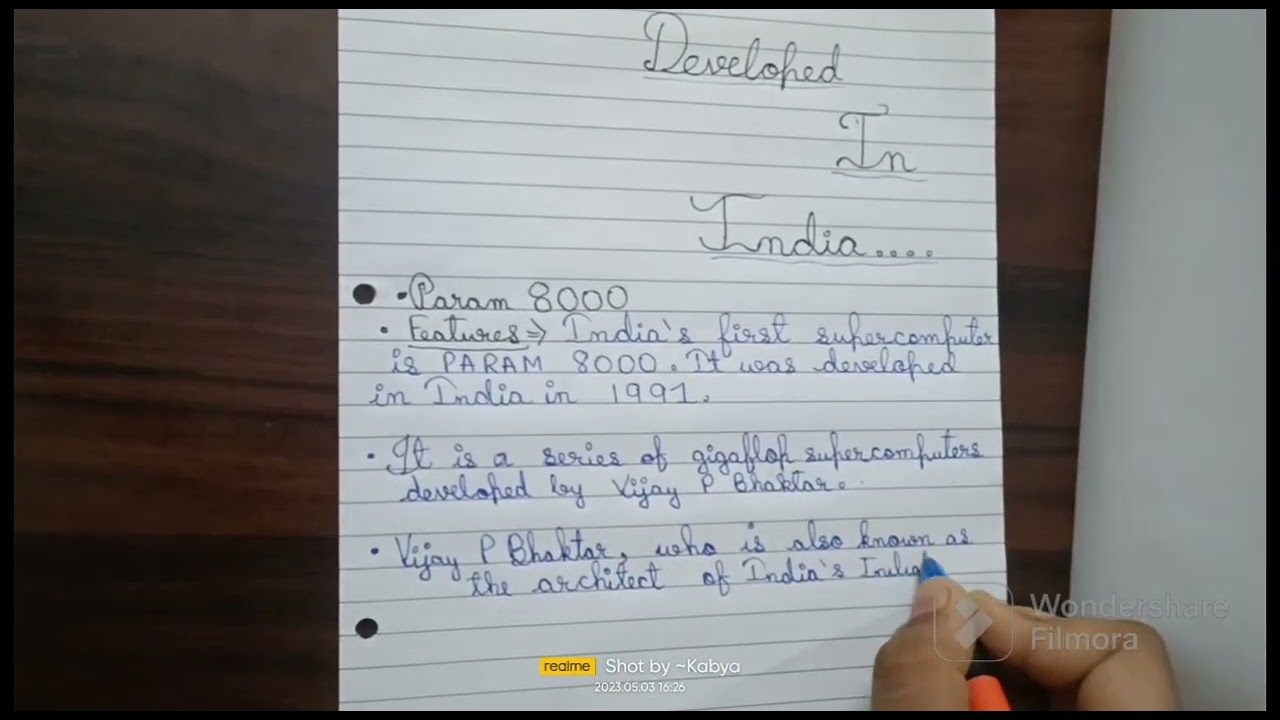 Developed
In
India....
• Param 8000
• Features ⇒ India's first supercomputer
is PARAM 8000. It was developed
in India in 1991.
• It is a series of gigaflop supercomputers
developed by Vijay P Bhaktar.
• Vijay P Bhaktar, who is also known as
the architect of India's
Wondershare
Filmora
realme Shot by ~Kabya
2023.05.03 16:26